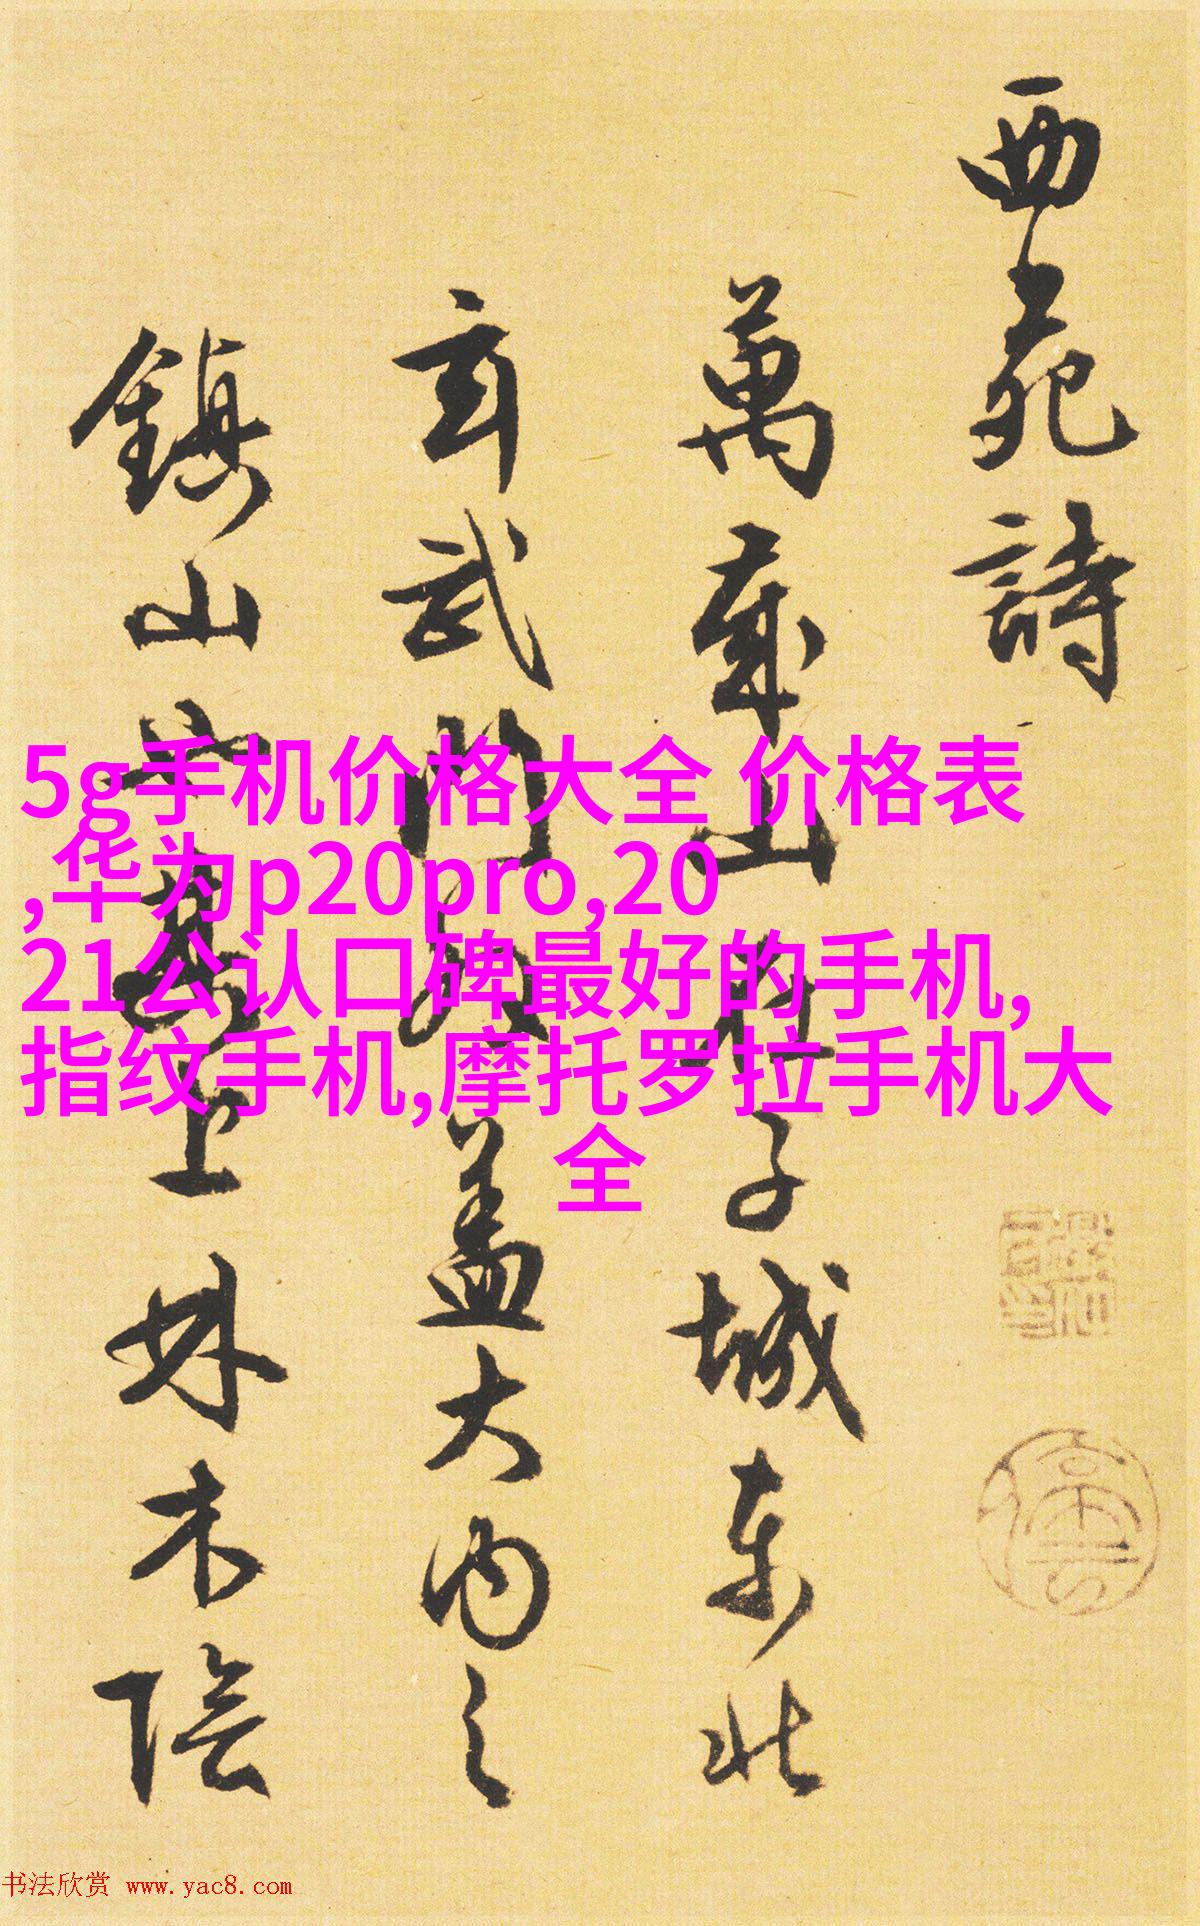 西苑詩
萬歲山在子城東北
玄武門外蓋大內之
鎮山也其上林木陰
5g手机价格大全 价格表
,华为p20pro,20
21公认口碑最好的手机,
指纹手机,摩托罗拉手机大
全
书法欣赏 www.yac8.com